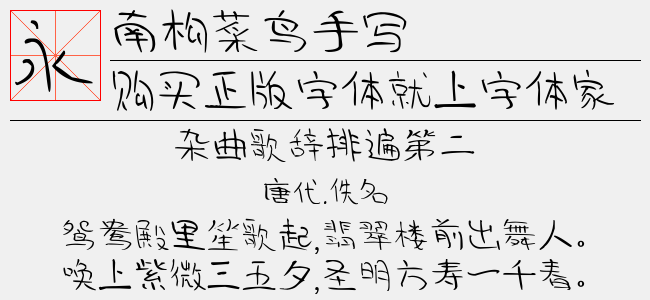 永
南松菜鸟手写
购买正版字体就上字体家
杂曲歌辞排遍第二
唐代.佚名
鸳鸯殿里笙歌起,翡翠楼前出舞人。
唤上紫微三五夕,圣明方寿一千春。